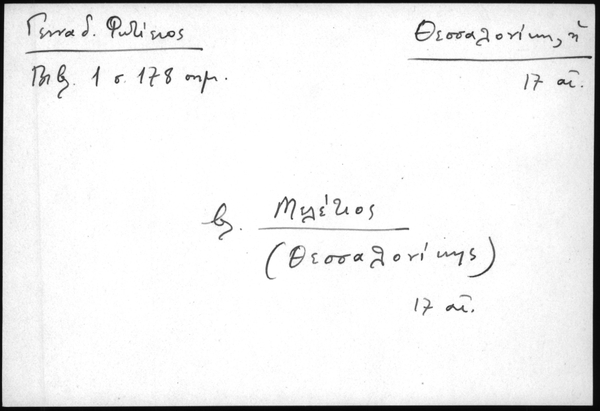 Γενναδ. Φωτίειος
Θεσσαλονίκης, ἡ
Βιβ. 1 σ. 178 σημ.
17 αἰ.
βλ. Μελέτιος
(Θεσσαλονίκης)
17 αἰ.